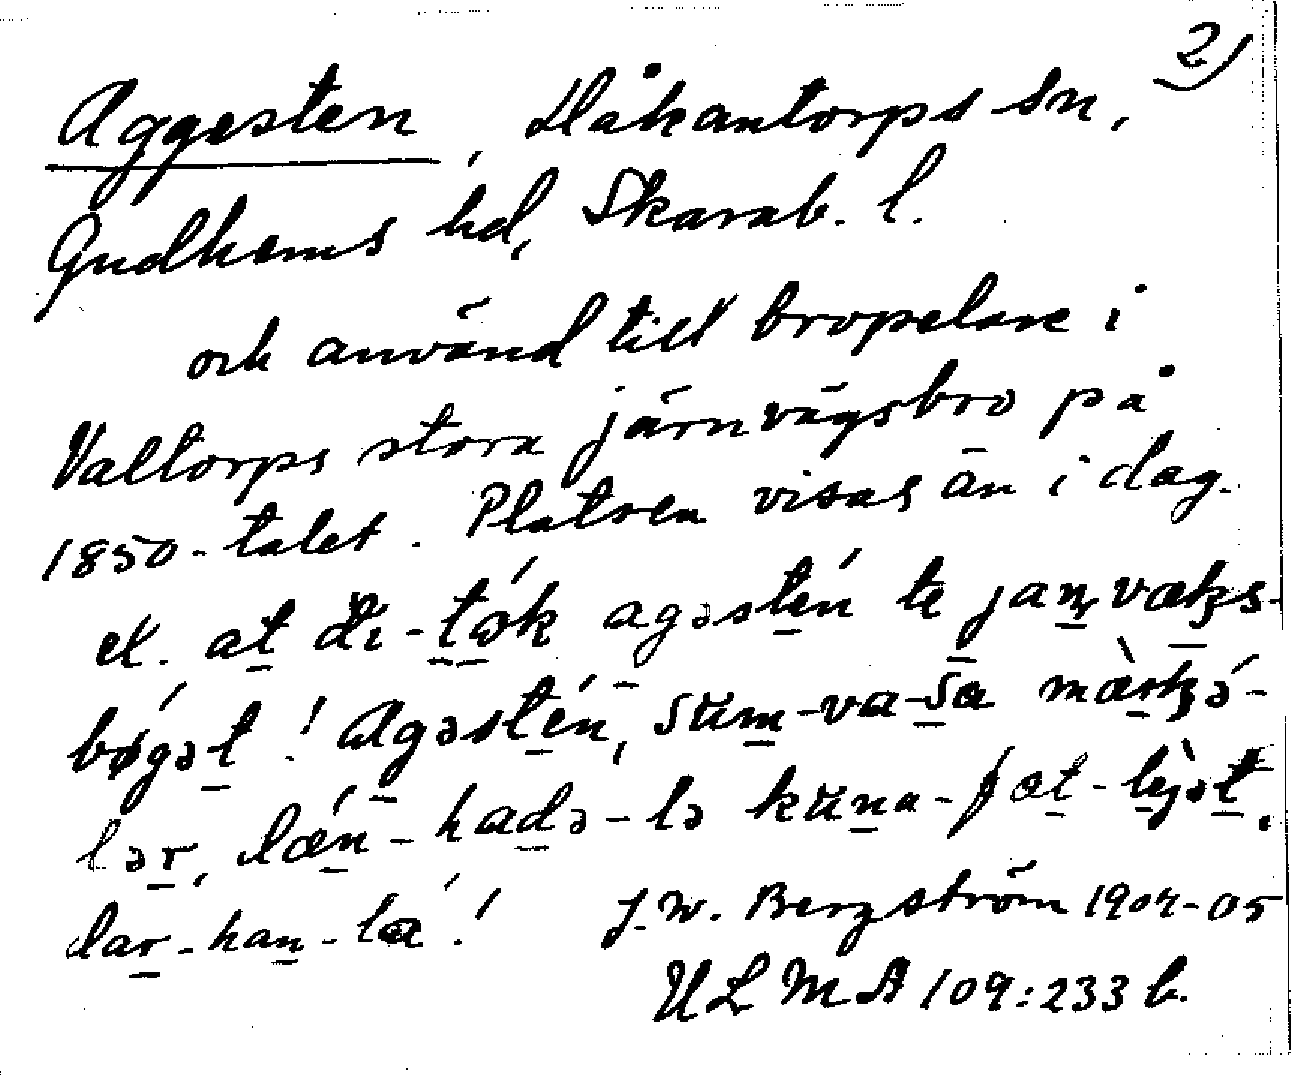 2)
Aggesten, Håkantorps sn,
Gudhems hd, Skarab. l.
och använd till bropelare i
Valtorps stora järnvägsbro på
1850-talet. Platsen visas än i dag.
el. at di-tók agəstén te jaṇvæks-
bøgət! Agəstén, sum-va-sa
lər, dæn-hadə-lə kuna-
dar-han-la!
J. W. Bergström 1904-05
ULMA 109:233 b.